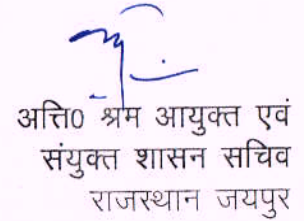 अति0 श्रम आयुक्त एवं
संयुक्त शासन सचिव
राजस्थान जयपुर